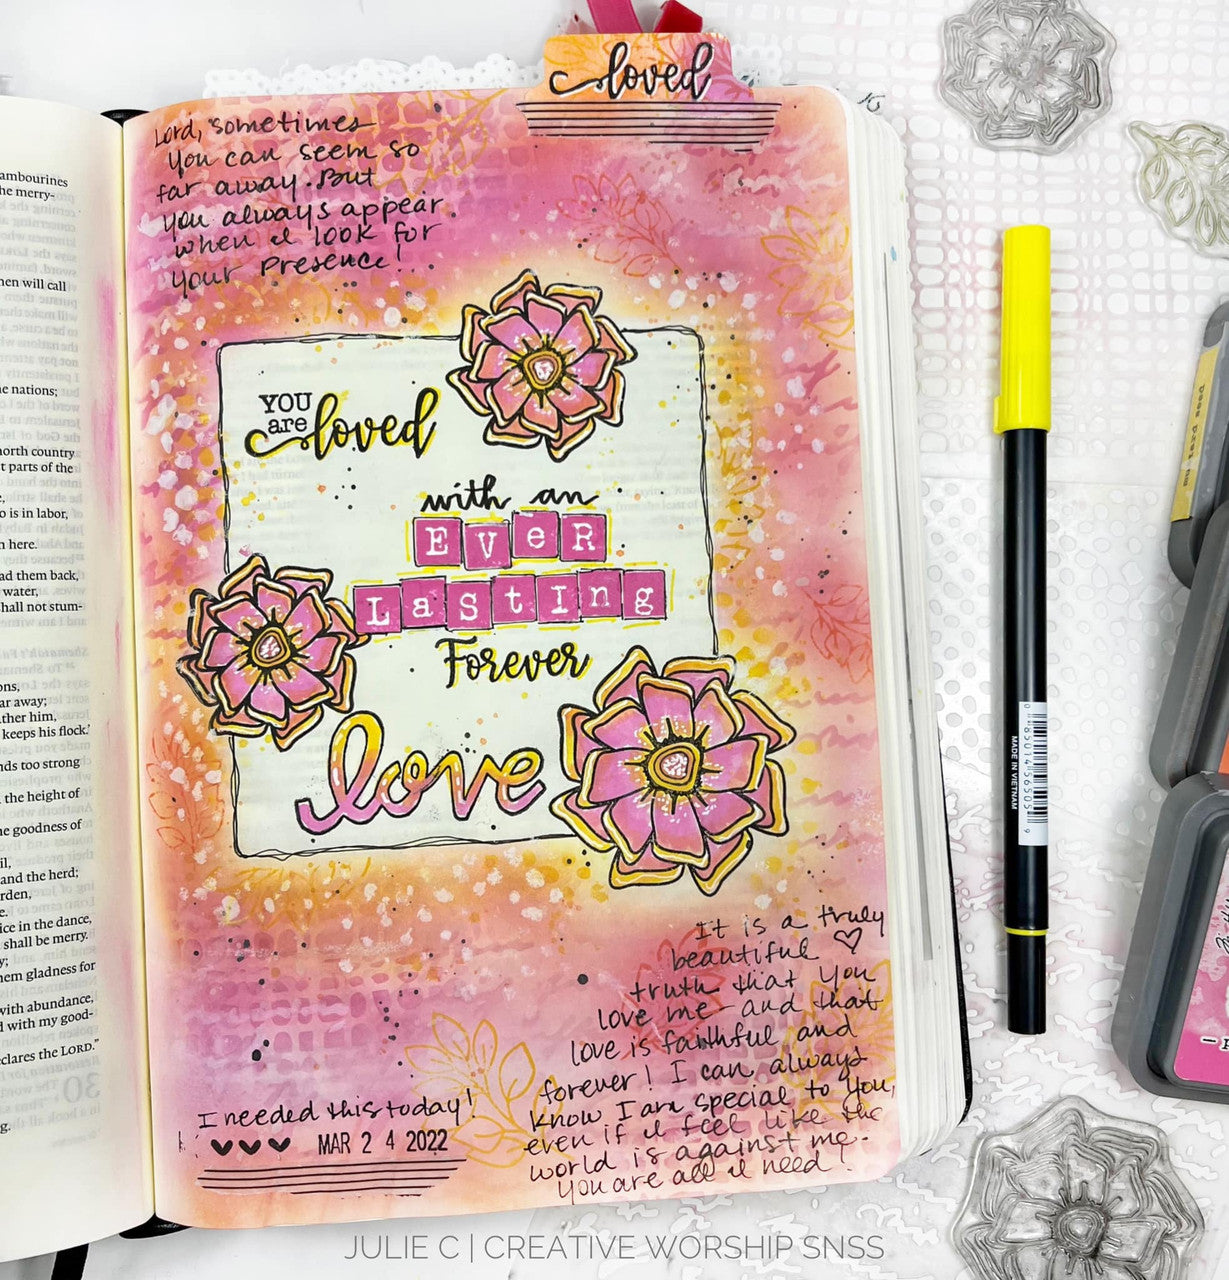 loved
Lord, sometimes
you can seem so
far away. But
you always appear
when I look for
your presence!
YOU
are loved
with an
EVER
Lasting
Forever
love
It is a truly
beautiful ♡
truth that you
love me and that
love is faithful and
forever! I can always
know I am special to you,
even if I feel like the
world is against me.
You are all I need!
I needed this today!
♥♥♥ MAR 24 2022
ambourines
he merry-
hen will call
e nations;
north country
t parts of the
o is in labor,
n here.
ad them back,
water,
hall not stum-
ons,
ar away;
ther him,
keeps his flock.'
nds too strong
the height of
he goodness of
il,
and the herd;
rden,
e.
ice in the dance,
shall be merry.
y;
hem gladness for
with abundance,
d with my good-
eclares the LORD."
g.
MADE IN VIETNAM
JULIE C | CREATIVE WORSHIP SNSS